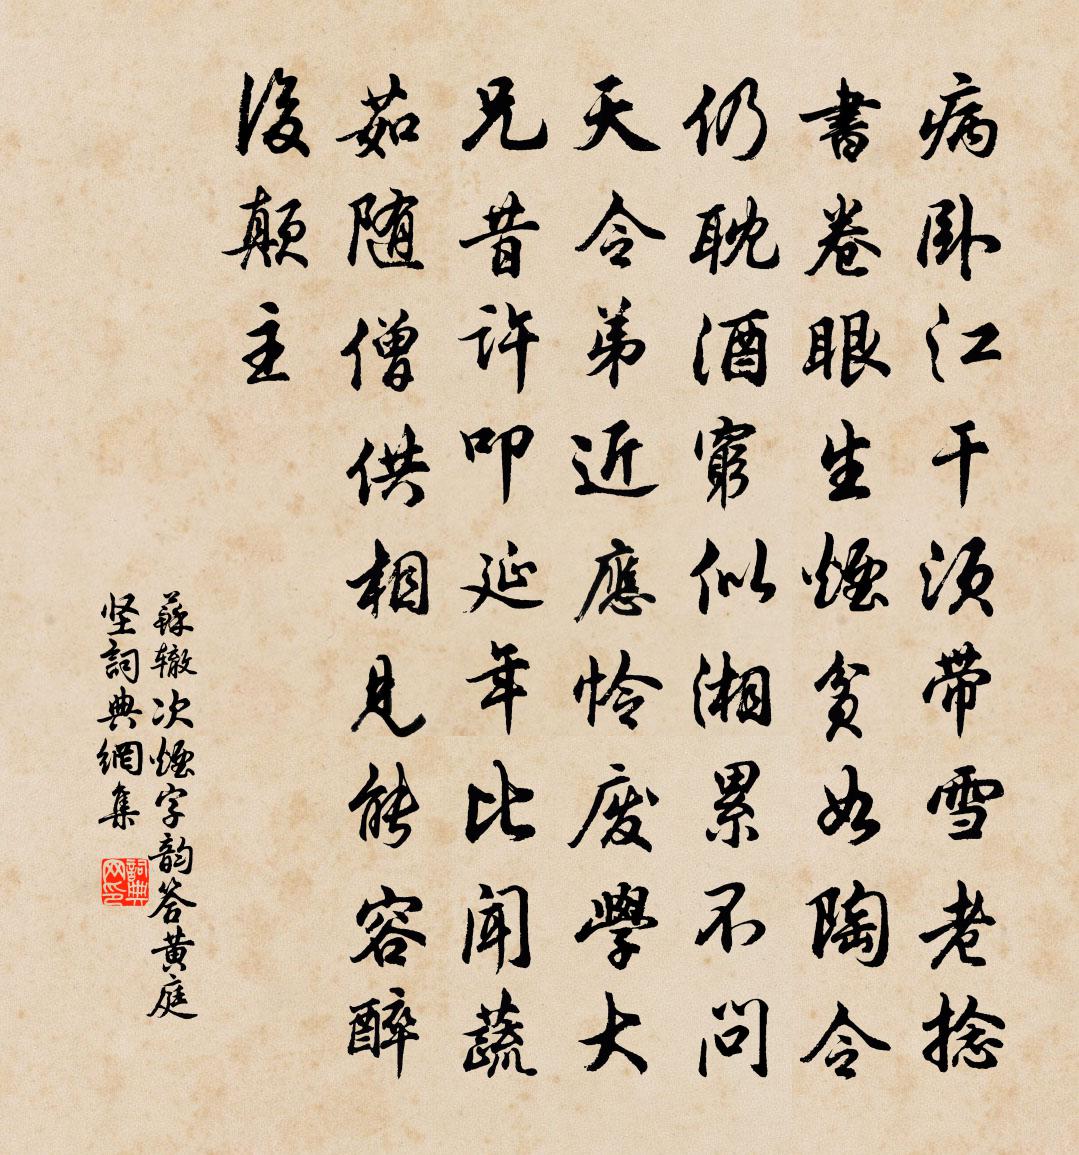 病卧江干须带雪老捻
書卷眼生煙貧如陶令
仍耽酒窮似湘累不問
天令弟近應怜廢學大
兄昔許叩延年比聞蔬
茹随僧供相見能容醉
後顛主
蘇辙次煙字韵答黄庭
坚詞典網集
詞典
网印